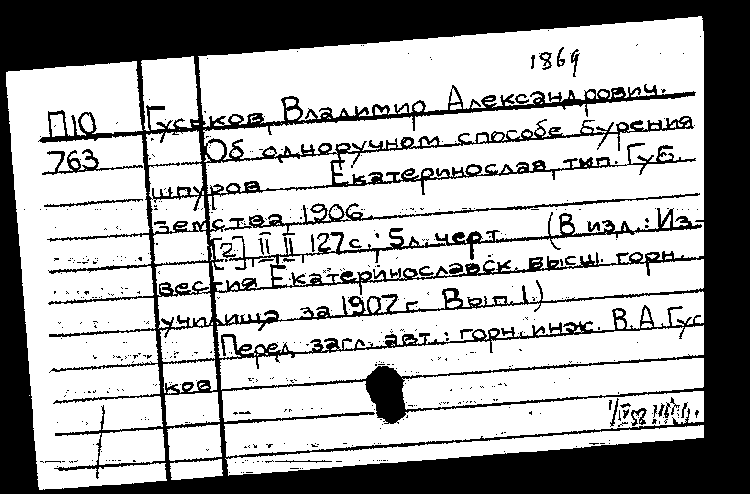 1869
П10 Гуськов, Владимир Александрович.
763 Об одноручном способе бурения
шпуров. Екатеринослав, тип. Губ.
земства, 1906.
[2], II, II, 127 с.; 5 л. черт. (В изд.: Из-
вестия Екатеринославск. высш. горн.
училища за 1907 г. Вып. 1.)
Перед загл. авт.: горн. инж. В. А. Гус
ков